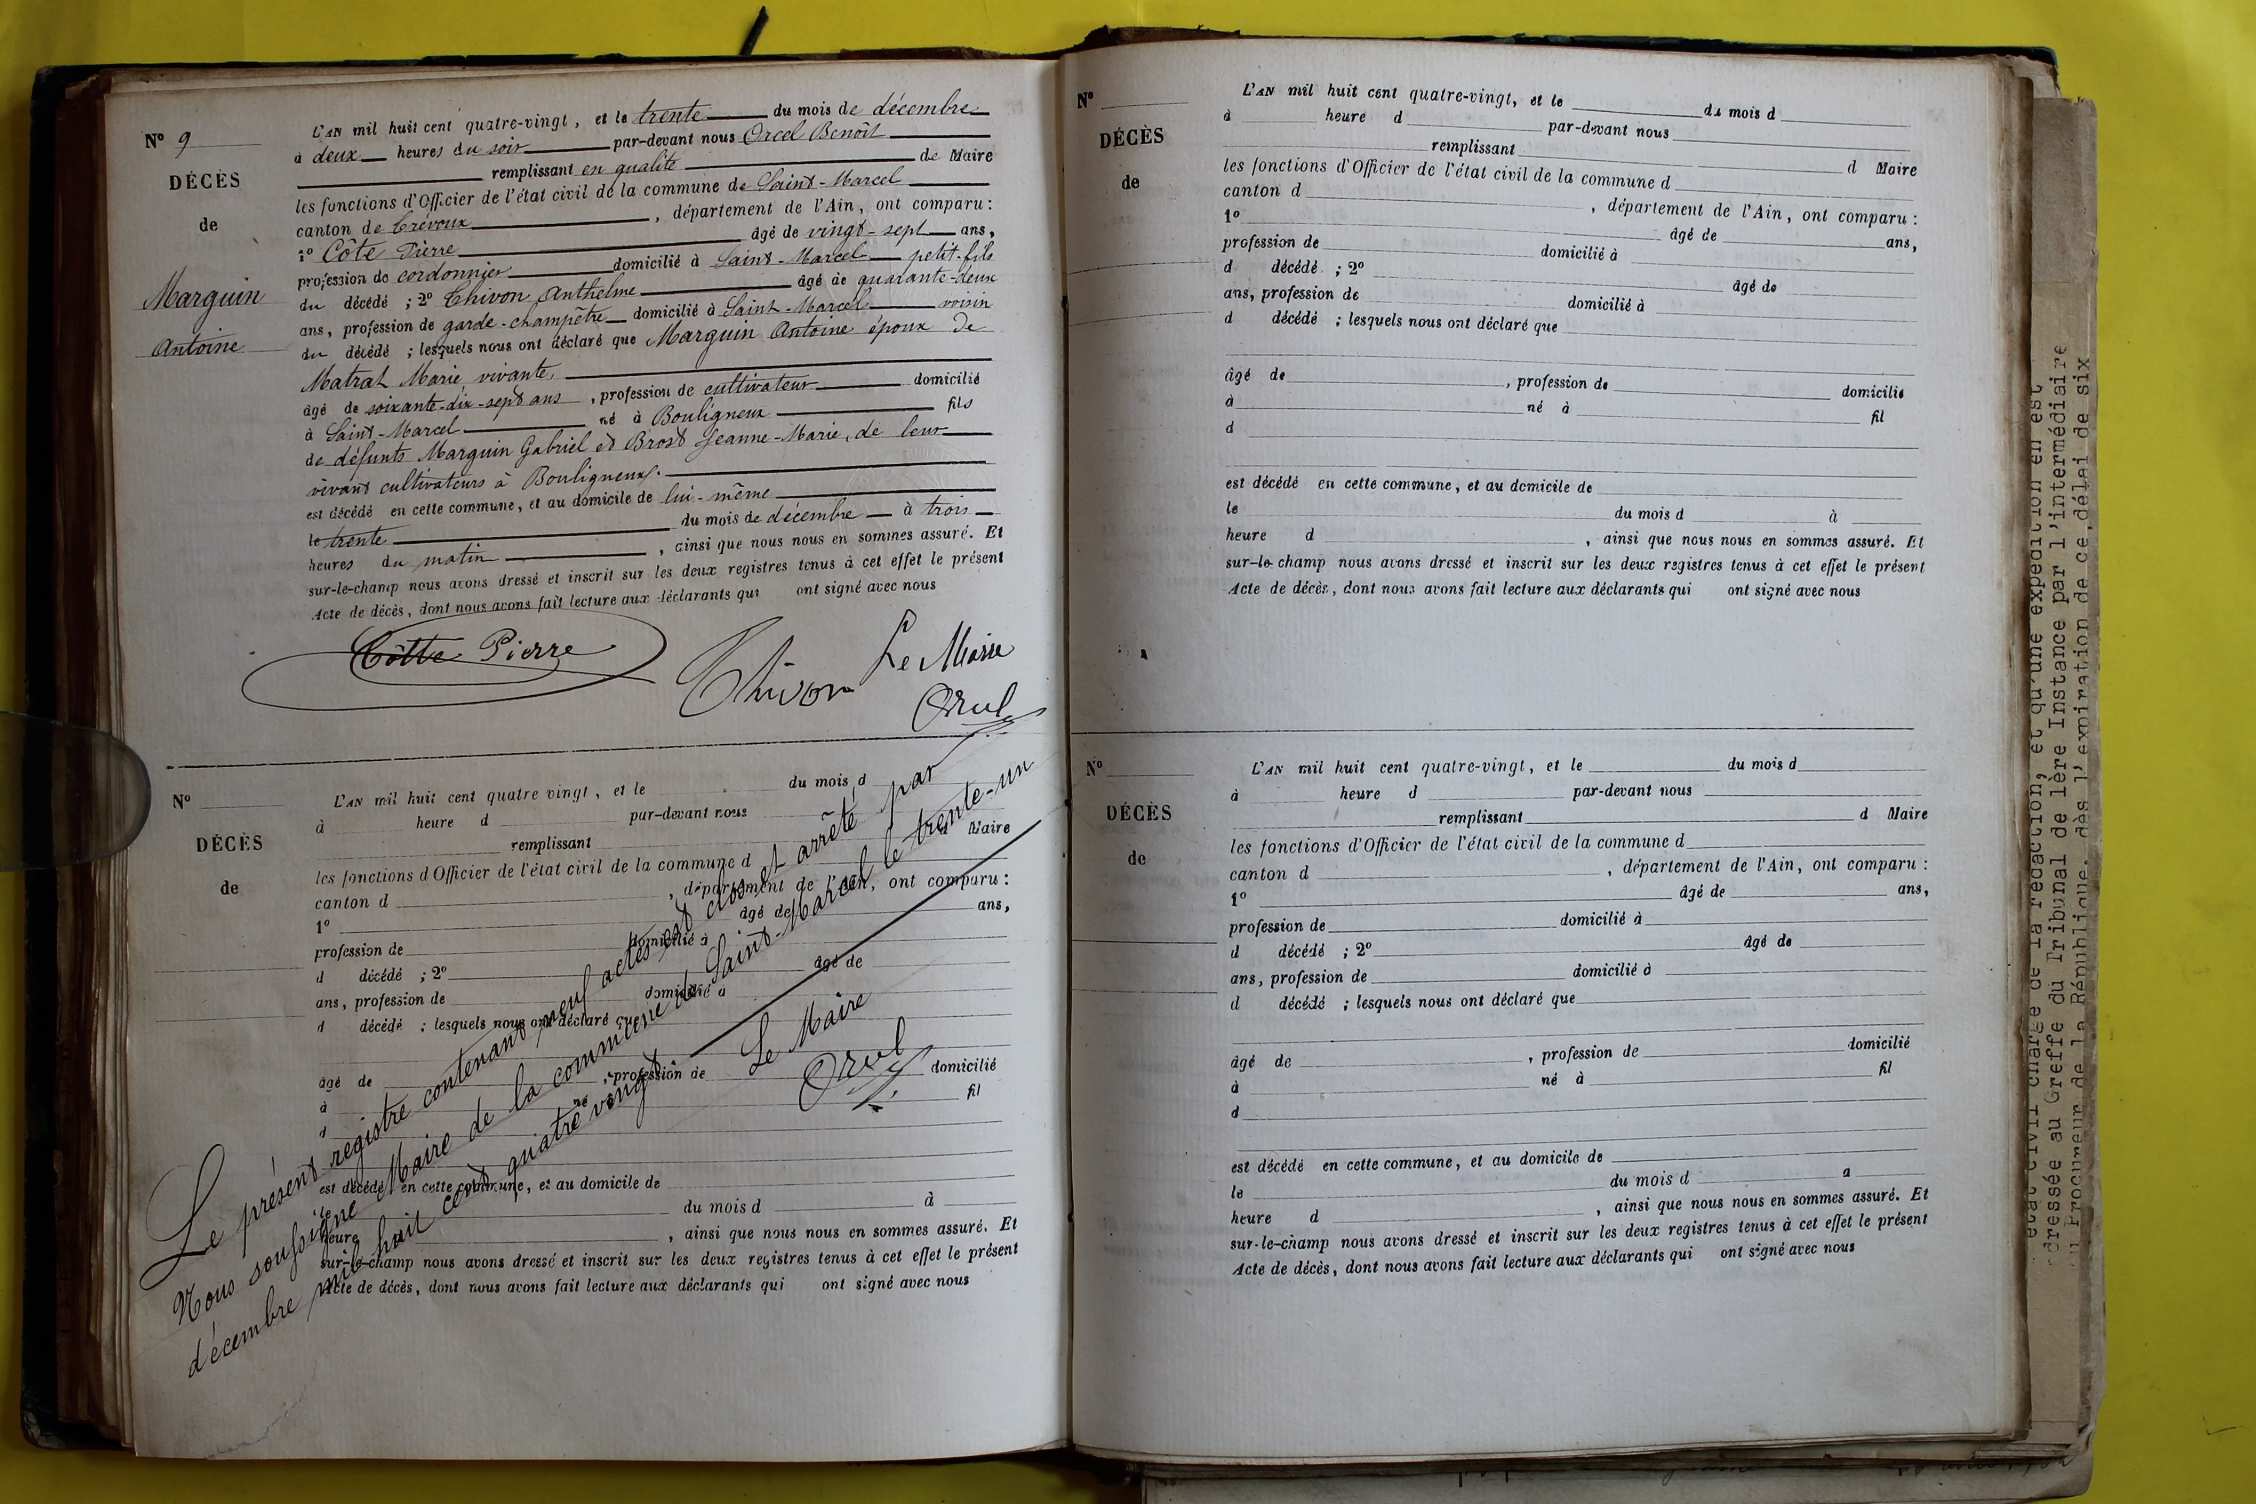 N° 9
DÉCÈS
de
Marguin
Antoine
L'AN mil huit cent quatre-vingt, et le trente du mois de décembre
à deux heures du soir par-devant nous Orcel Benoît
remplissant en qualité de Maire
les fonctions d'Officier de l'état civil de la commune de Saint-Marcel
canton de Trévoux, département de l'Ain, ont comparu :
1° Côte Pierre âgé de vingt-sept ans,
profession de cordonnier domicilié à Saint-Marcel petit-fils
du décédé ; 2° Chivon Anthelme âgé de quarante-deux
ans, profession de garde-champêtre domicilié à Saint-Marcel voisin
du décédé ; lesquels nous ont déclaré que Marguin Antoine époux de
Matrat Marie vivante,
âgé de soixante-dix-sept ans, profession de cultivateur domicilié
à Saint-Marcel né à Bouligneux fils
de défunts Marguin Gabriel et Brost Jeanne-Marie, de leur
vivant cultivateurs à Bouligneux.
est décédé en cette commune, et au domicile de lui-même
le trente du mois de décembre à trois
heures du matin, ainsi que nous nous en sommes assuré. Et
sur-le-champ nous avons dressé et inscrit sur les deux registres tenus à cet effet le présent
Acte de décès, dont nous avons fait lecture aux déclarants qui ont signé avec nous
Côtte Pierre
Chivon
Le Maire
Orcel
N°
DÉCÈS
de
L'AN mil huit cent quatre vingt, et le du mois d
à heure d par-devant nous
remplissant d Maire
les fonctions d'Officier de l'état civil de la commune d
canton d , département de l'Ain, ont comparu :
1° âgé de ans,
profession de domicilié à
d décédé ; 2° âgé de
ans, profession de domicilié à
d décédé ; lesquels nous ont déclaré que
âgé de , profession de domicilié
à né à fil
d
est décédé en cette commune, et au domicile de
le du mois d à
heure d , ainsi que nous nous en sommes assuré. Et
sur-le-champ nous avons dressé et inscrit sur les deux registres tenus à cet effet le présent
Acte de décès, dont nous avons fait lecture aux déclarants qui ont signé avec nous
Le présent registre contenant neuf actes est clos et arrêté par
Nous soussigné Maire de la commune de Saint-Marcel le trente-un
décembre mil huit cent quatre vingt.
Le Maire
Orcel
N°
DÉCÈS
de
L'AN mil huit cent quatre-vingt, et le du mois d
à heure d par-devant nous
remplissant d Maire
les fonctions d'Officier de l'état civil de la commune d
canton d , département de l'Ain, ont comparu :
1° âgé de ans,
profession de domicilié à
d décédé ; 2° âgé de
ans, profession de domicilié à
d décédé ; lesquels nous ont déclaré que
âgé de , profession de domicilié
à né à fil
d
est décédé en cette commune, et au domicile de
le du mois d à
heure d , ainsi que nous nous en sommes assuré. Et
sur-le-champ nous avons dressé et inscrit sur les deux registres tenus à cet effet le présent
Acte de décès, dont nous avons fait lecture aux déclarants qui ont signé avec nous
N°
DÉCÈS
de
L'AN mil huit cent quatre-vingt, et le du mois d
à heure d par-devant nous
remplissant d Maire
les fonctions d'Officier de l'état civil de la commune d
canton d , département de l'Ain, ont comparu :
1° âgé de ans,
profession de domicilié à
d décédé ; 2° âgé de
ans, profession de domicilié à
d décédé ; lesquels nous ont déclaré que
âgé de , profession de domicilié
à né à fil
d
est décédé en cette commune, et au domicile de
le du mois d à
heure d , ainsi que nous nous en sommes assuré. Et
sur-le-champ nous avons dressé et inscrit sur les deux registres tenus à cet effet le présent
Acte de décès, dont nous avons fait lecture aux déclarants qui ont signé avec nous
état civil chargé de la rédaction, et qu'une expédition en est
dressée au Greffe du Tribunal de 1ère Instance par l'intermédiaire
du Procureur de la République, dès l'expiration de ce délai de six